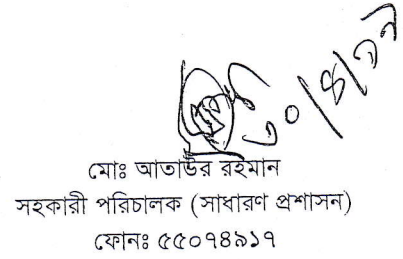 ৩০/৪/১৭
মোঃ আতাউর রহমান
সহকারী পরিচালক (সাধারণ প্রশাসন)
ফোনঃ ৫৫০৭৪৯১৭